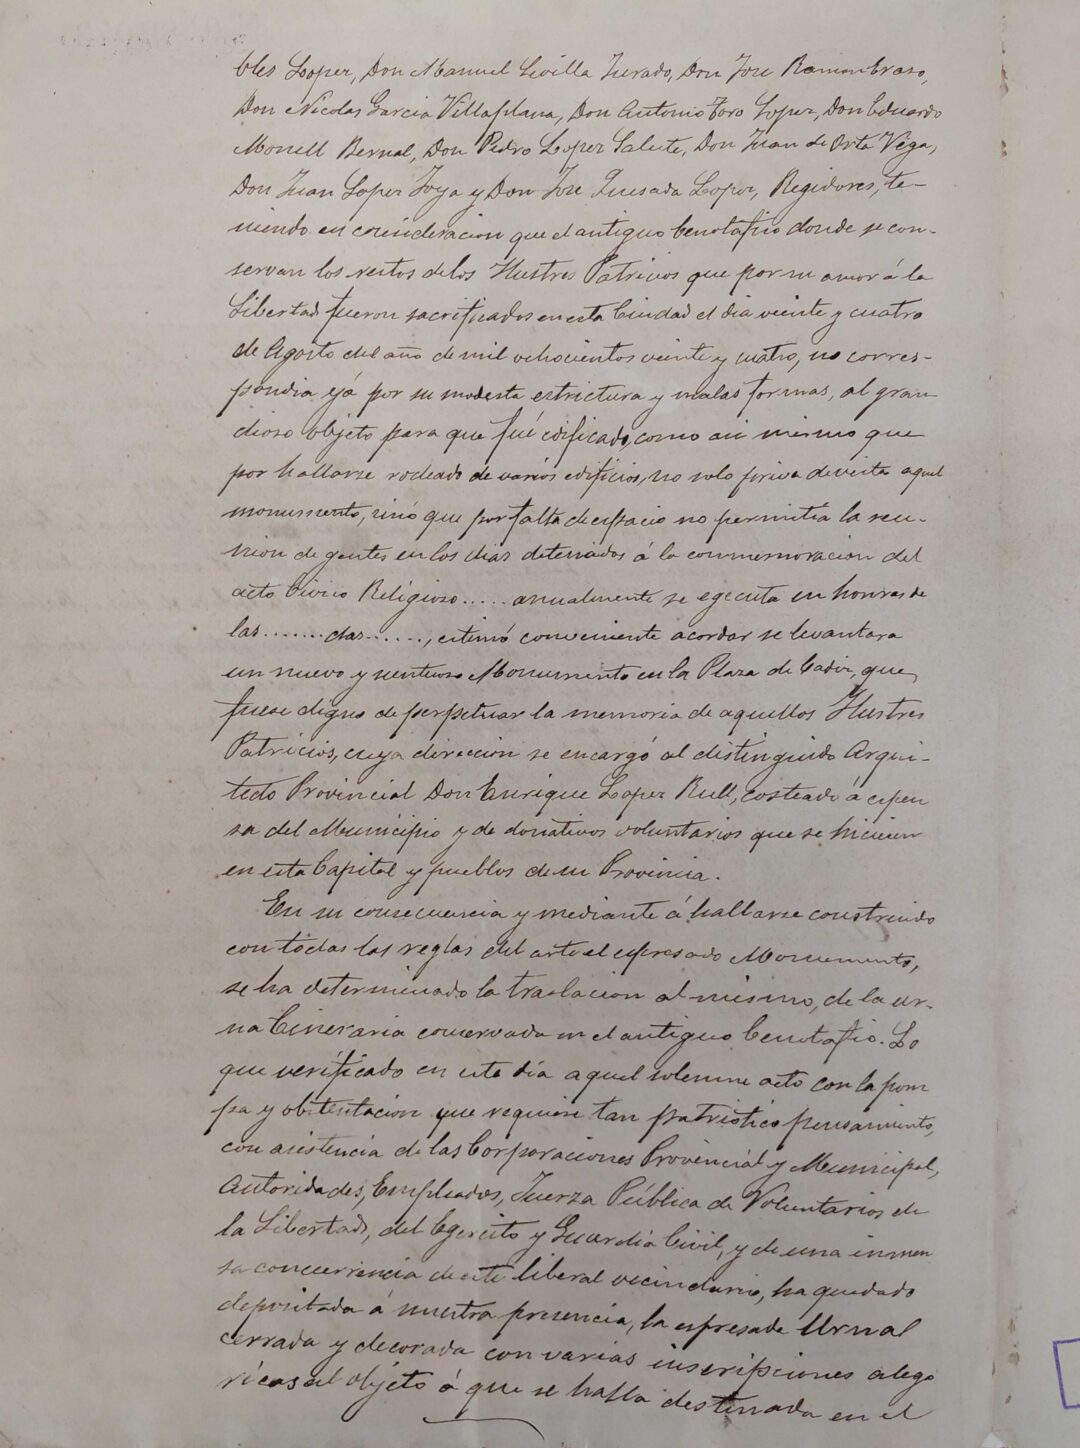 bles Loper, Don Manuel Sevilla Jurado, Don Jose Ramon Eraso,
Don Nicolas Garcia Villaplana, Don Antonio Toro Loper, Don Eduardo
Monell Bernal, Don Pedro Loper Salute, Don Juan de Orta Vega,
Don Juan Loper Joya y Don Jose Quesada Loper, Regidores, te-
niendo en consideracion que el antiguo Cenotafio donde se con-
servan los restos de los Ilustres Patricios que por su amor á la
Libertad fueron sacrificados en esta Ciudad el dia veinte y cuatro
de Agosto del año de mil ochocientos veinte y cuatro, no corres-
pondia yá por su modesta estrictura y malas formas, al gran
dioso objeto para que fué edificado, como asi mismo que
por hallarse rodeado de varios edificios, no solo priva de vista aquel
monumento, sinó que por falta de espacio no permitia la reu-
nion de gentes en los dias destinados á la conmemoracion del
acto Civico Religioso..... anualmente se egecuta en honras de
las....... das......, estimó conveniente acordar se levantara
un nuevo y suntuoso Monumento en la Plaza de Cadiz, que
fuese digno de perpetuar la memoria de aquellos Ilustres
Patricios, cuya direccion se encargó al distinguido Arqui-
tecto Provincial Don Enrique Loper Rull, costeado á espen
sa del Municipio y de donativos voluntarios que se hicieron
en esta Capital y pueblos de su Provincia.
En su consecuencia y mediante á hallarse construido
con todas las reglas del arte el espresado Monumento,
se ha determinado la traslacion al mismo, de la ur-
na Cineraria conservada en el antiguo Cenotafio. Lo
que verificado en este dia aquel solemne acto con la pom
pa y obstentacion que requiere tan patriotico pensamiento,
con asistencia de las Corporaciones Provincial y Municipal,
Autoridades, Empleados, Fuerza Pública de Voluntarios de
la Libertad, del Egercito y Guardia Civil, y de una inmen
sa concurrencia de este liberal vecindario, ha quedado
depositada á nuestra presencia, la espresada Urna
cerrada y decorada con varias inscripciones alego
ricas al objeto á que se halla destinada en el